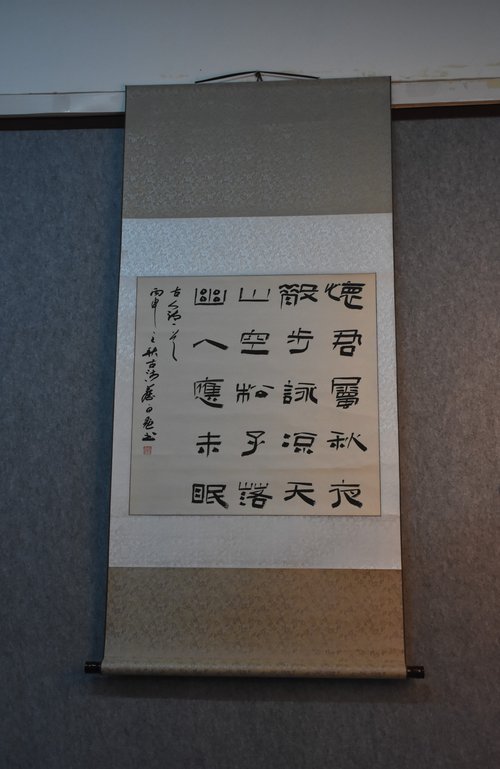 懷君屬秋夜
散步詠涼天
山空松子落
幽人應未眠
古人詩一首
丙申之秋
書